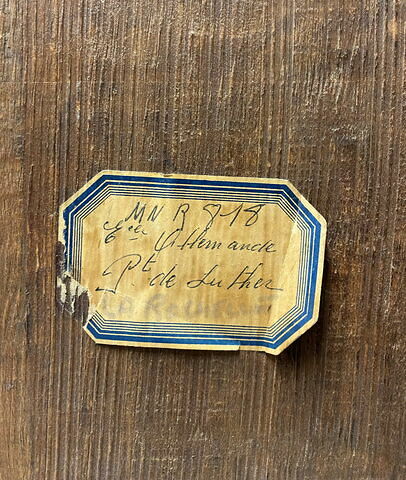 MNR 818
Ecole Allemande
Pt. de Luther